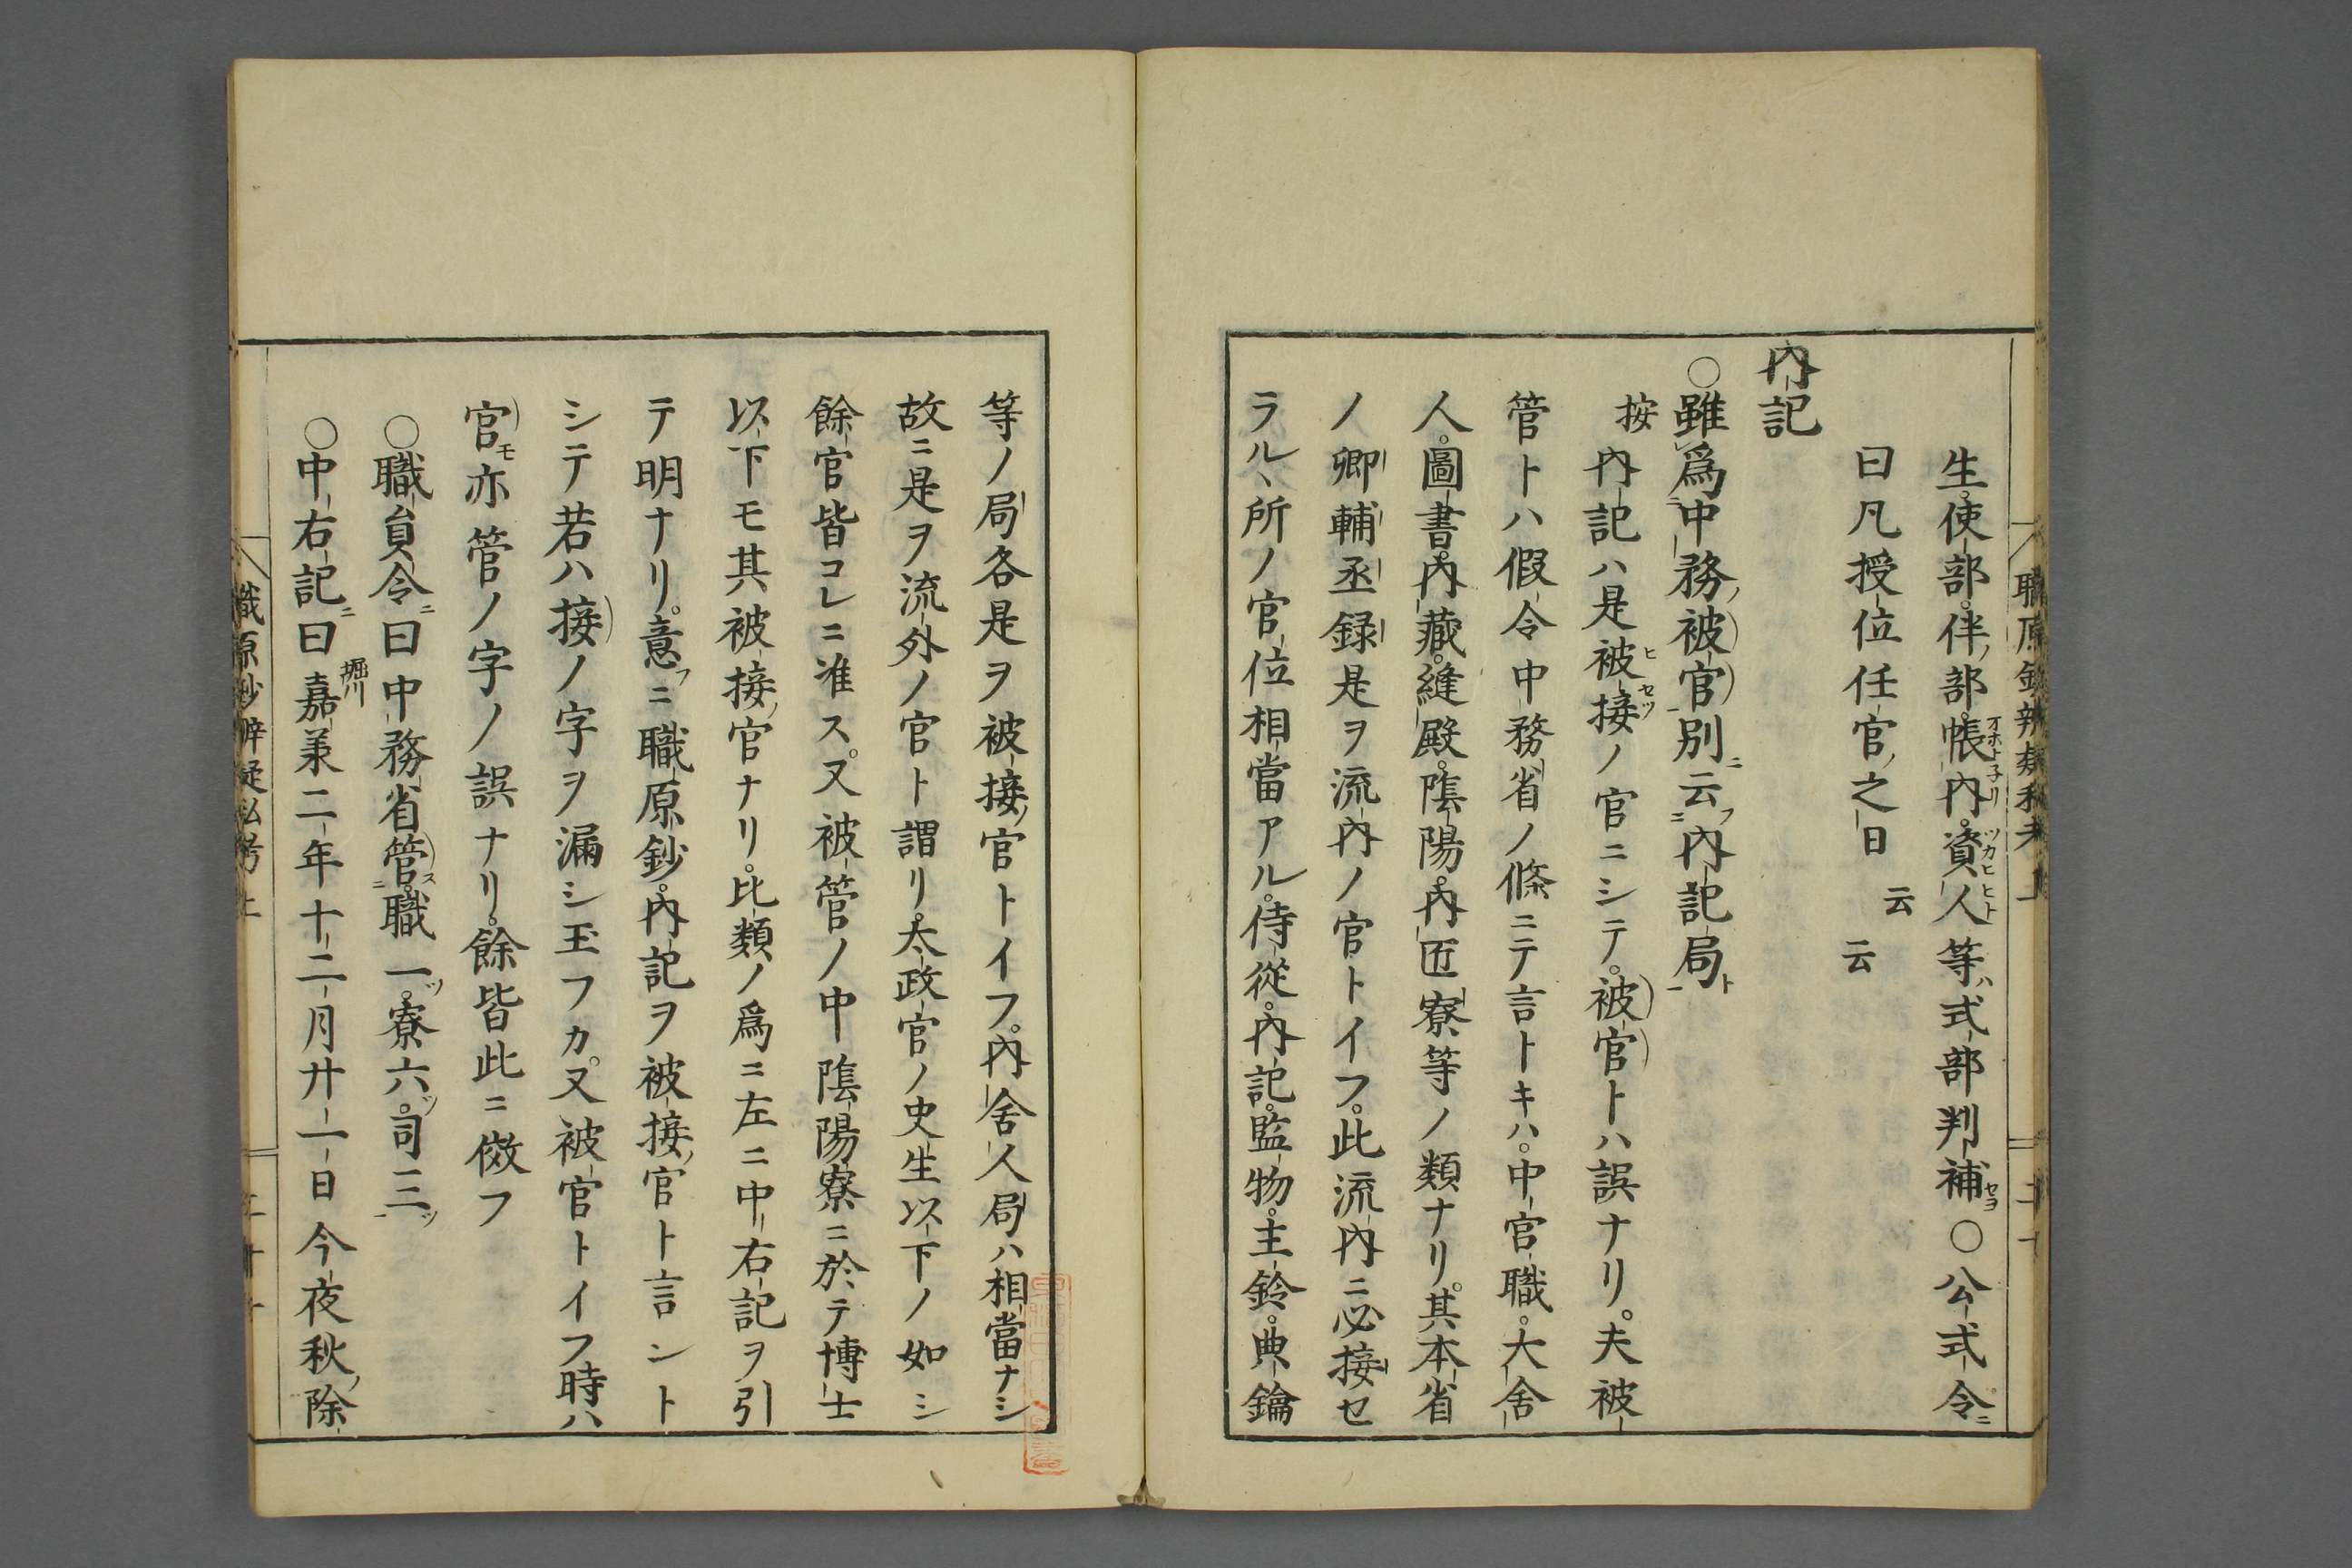 生。使部。伴部。帳内。資人等ハ式部判補セヨ〇公式令ニ
曰凡授位任官之日云云
内記
〇雖爲中務被官別ニ云フ内記局ト
按内記ハ是被接ノ官ニシテ。被官トハ誤ナリ。夫被
管トハ假令中務省ノ條ニテ言トキハ。中宮職。大舍
人。圖書。内藏。縫殿。陰陽。内匠寮等ノ類ナリ。其本省
ノ卿輔丞録是ヲ流内ノ官トイフ。此流内ニ必接セ
ラルヽ所ノ官位相當アル。侍從。内記。監物。主鈴。典鑰
等ノ局各是ヲ被接官トイフ。内舍人局ハ相當ナシ
故ニ是ヲ流外ノ官ト謂リ。太政官ノ史生以下ノ如シ
餘官皆コレニ准ス。又被管ノ中陰陽寮ニ於テ博士
以下モ其被接官ナリ。比類ノ爲ニ左ニ中右記ヲ引
テ明ナリ。意フニ職原鈔。内記ヲ被接官ト言ント
シテ若ハ接ノ字ヲ漏シ玉フカ。又被官トイフ時ハ
官モ亦管ノ字ノ誤ナリ。餘皆此ニ傚フ
〇職員令ニ曰中務省管ス職一ツ。寮六ツ。司三ツ
〇中右記ニ曰堀川嘉兼二年十二月廿一日今夜秋除
職原鈔辨疑私考上